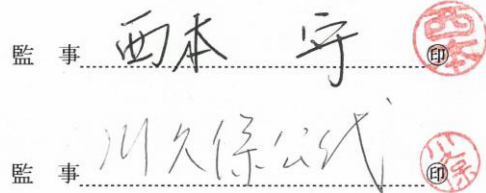 監事 西本 守 ㊞
監事 川久保公代 ㊞